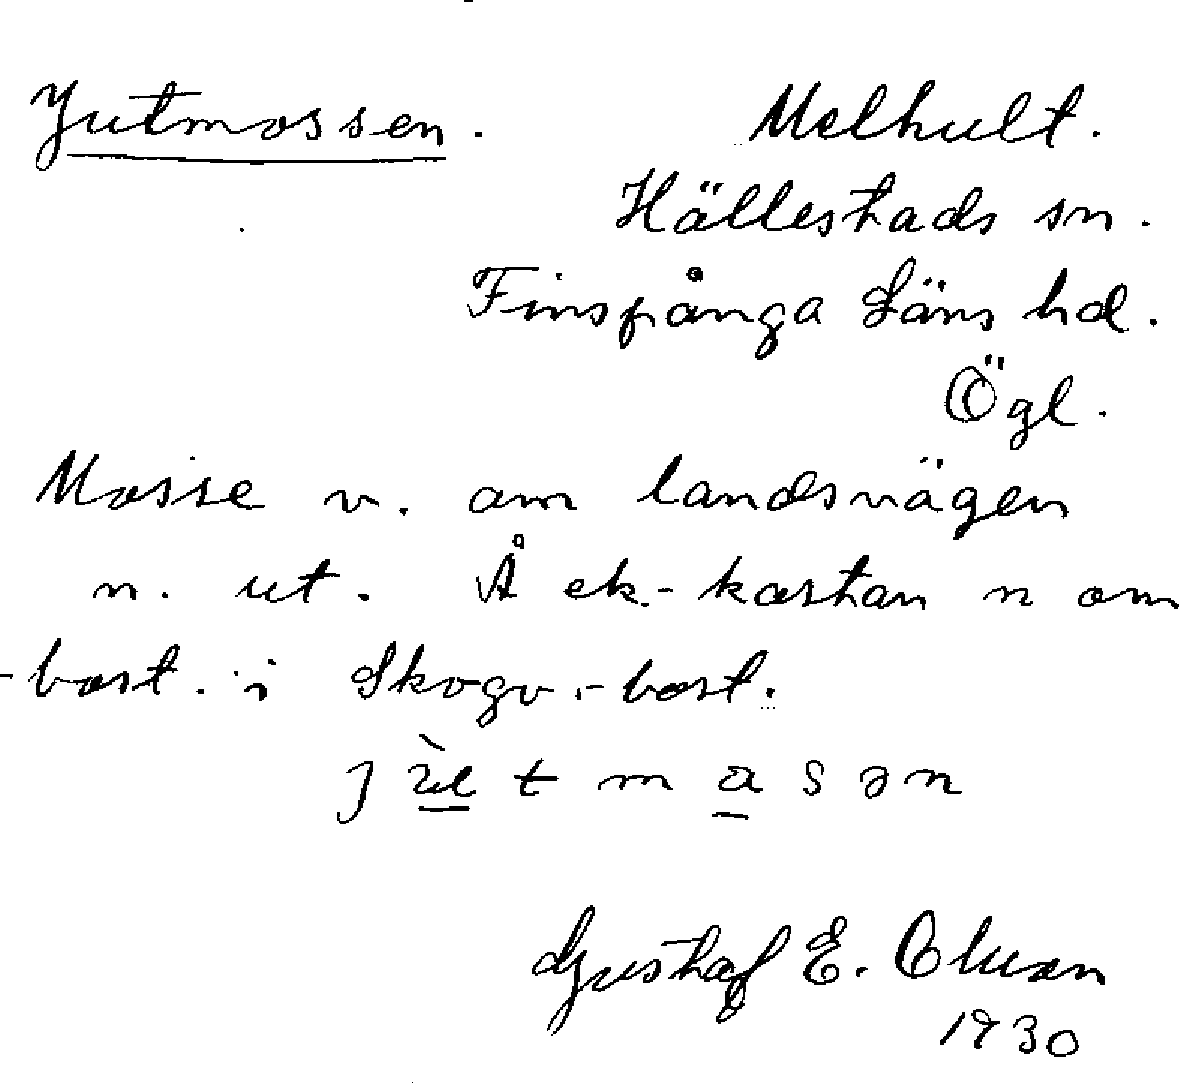 Jutmossen. Melhult.
Hällestads sn.
Finspånga Läns hd.
Ögl.
Mosse v. om landsvägen
n. ut. Å ek.-kartan n om
-bost. i Skogv.-bost.
j ù t m a s ə n
Gustaf E. Olsson
1930